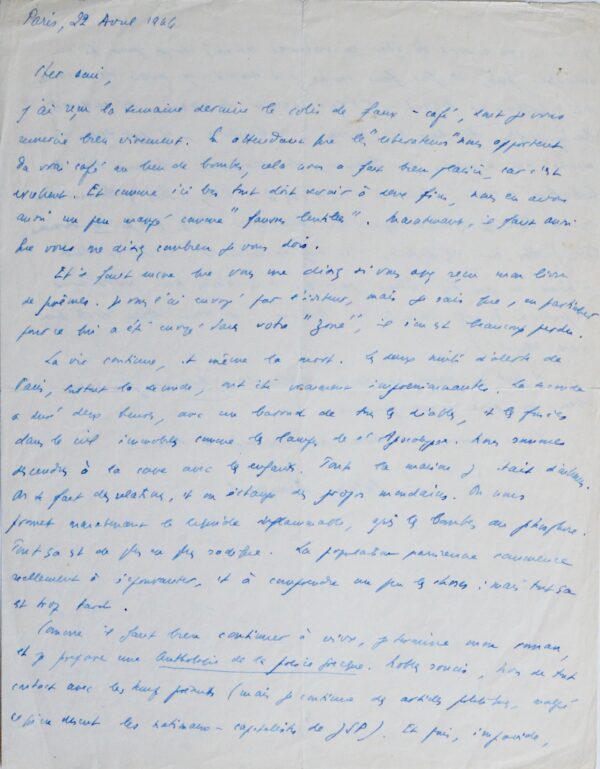 Paris, 22 Avril 1944
Cher ami,
J'ai reçu la semaine dernière le colis de faux-café, dont je vous
remercie bien vivement. En attendant que les "libérateurs" nous apportent
du vrai café au lieu de bombes, cela nous a fait bien plaisir, car c'est
excellent. Et comme ici bas tout doit servir à deux fins, nous en avons
aussi un peu mangé comme "fausses lentilles". Maintenant, il faut aussi
que vous me disiez combien je vous dois.
Et il faut encore que vous me disiez si vous avez reçu mon livre
de poèmes. Je vous l'ai envoyé par l'éditeur, mais je sais que, en particulier
pour ce qui a été envoyé dans votre "zone", il s'en est beaucoup perdu.
La vie continue, et même la mort. Les deux nuits d'alerte de
Paris, surtout la seconde, ont été vraiment impressionnantes. La seconde
a duré deux heures, avec un barouf de tous les diables, et les fusées
dans le ciel immobiles comme les lampes de l'Apocalypse. Nous sommes
descendus à la cave avec les enfants. Toute la maison y était d'ailleurs.
On se fait des relations, et on échange des propos mondains. On nous
promet maintenant le liquide inflammable, après les bombes au phosphore.
Tout ça est de plus en plus sadique. La population parisienne commence
réellement à s'épouvanter, et à comprendre un peu les choses : mais tout ça
est trop tard.
Comme il faut bien continuer à vivre, je termine mon roman,
et je prépare une Anthologie de la poésie grecque. Nobles soucis, hors de tout
contact avec les temps présents (mais je continue des articles politiques, malgré
ce qu'en disent les nationaux-capitalistes de JSP). Et puis, impavide,